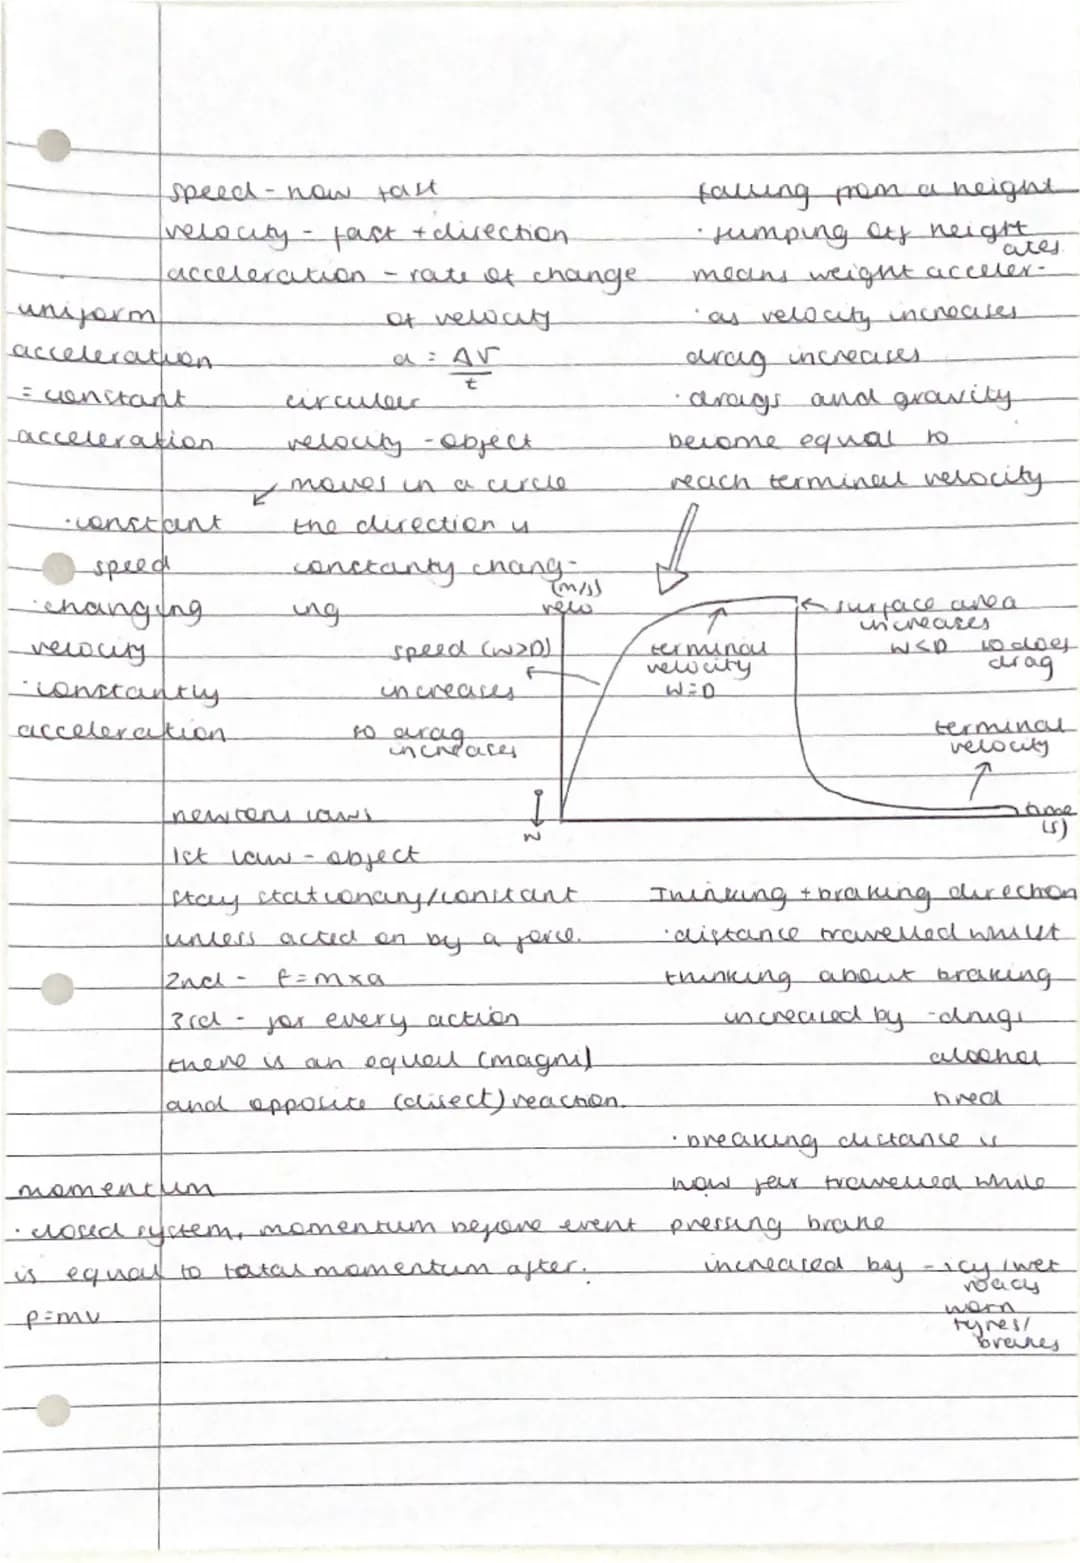 speed - how fast
velocity - fast + direction
acceleration - rate of change
of velocity
a = Δv
t
uniform
acceleration
= constant
acceleration
circular
velocity - object
moves in a circle
the direction is
constanty chang-
ing
· constant
speed
· changing
velocity
· constantly
acceleration
falling from a height
· jumping off height
means weight acceler-
ates
· as velocity increases
drag increases
· drags and gravity
become equal to
reach terminal velocity
(m/s)
velo
speed (W>D)
increases
so drag
increases
terminal
velocity
W=D
surface area
increases
W<D so does
drag
terminal
velocity
time
(s)
newtons laws
1st law - object
stay stationary/constant
unless acted on by a force.
2nd - f=mxa
3rd - for every action
there is an equal (magni)
and opposite (direct) reaction.
Thinking + braking direction
· distance travelled whilst
thinking about braking
increased by - drugs
alcohol
tired
· breaking distance is
how far travelled while
pressing brake
increased by - icy/wet
roads
worn
tyres/
brakes
momentum
· closed system, momentum before event
is equal to total momentum after.
p=mv